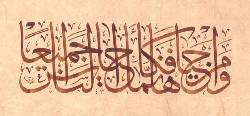 ومن أحياها فكأنما أحيا الناس جميعا